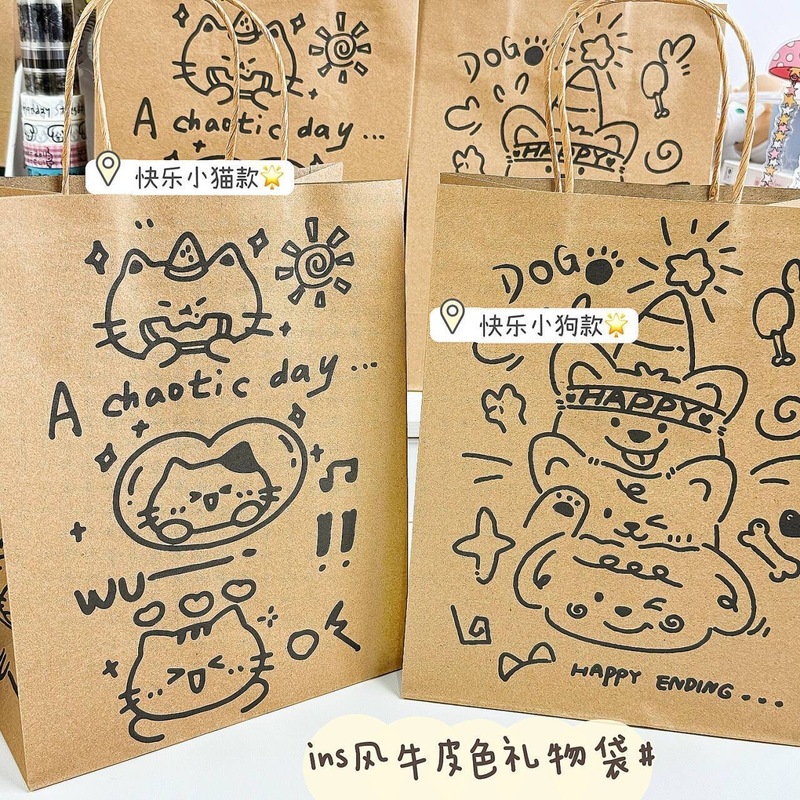 A chaotic day...
DOG
HAPPY
快乐小猫款
快乐小狗款
DOG
HAPPY
A chaotic day...
WU—
HAPPY ENDING...
ins风牛皮色礼物袋#